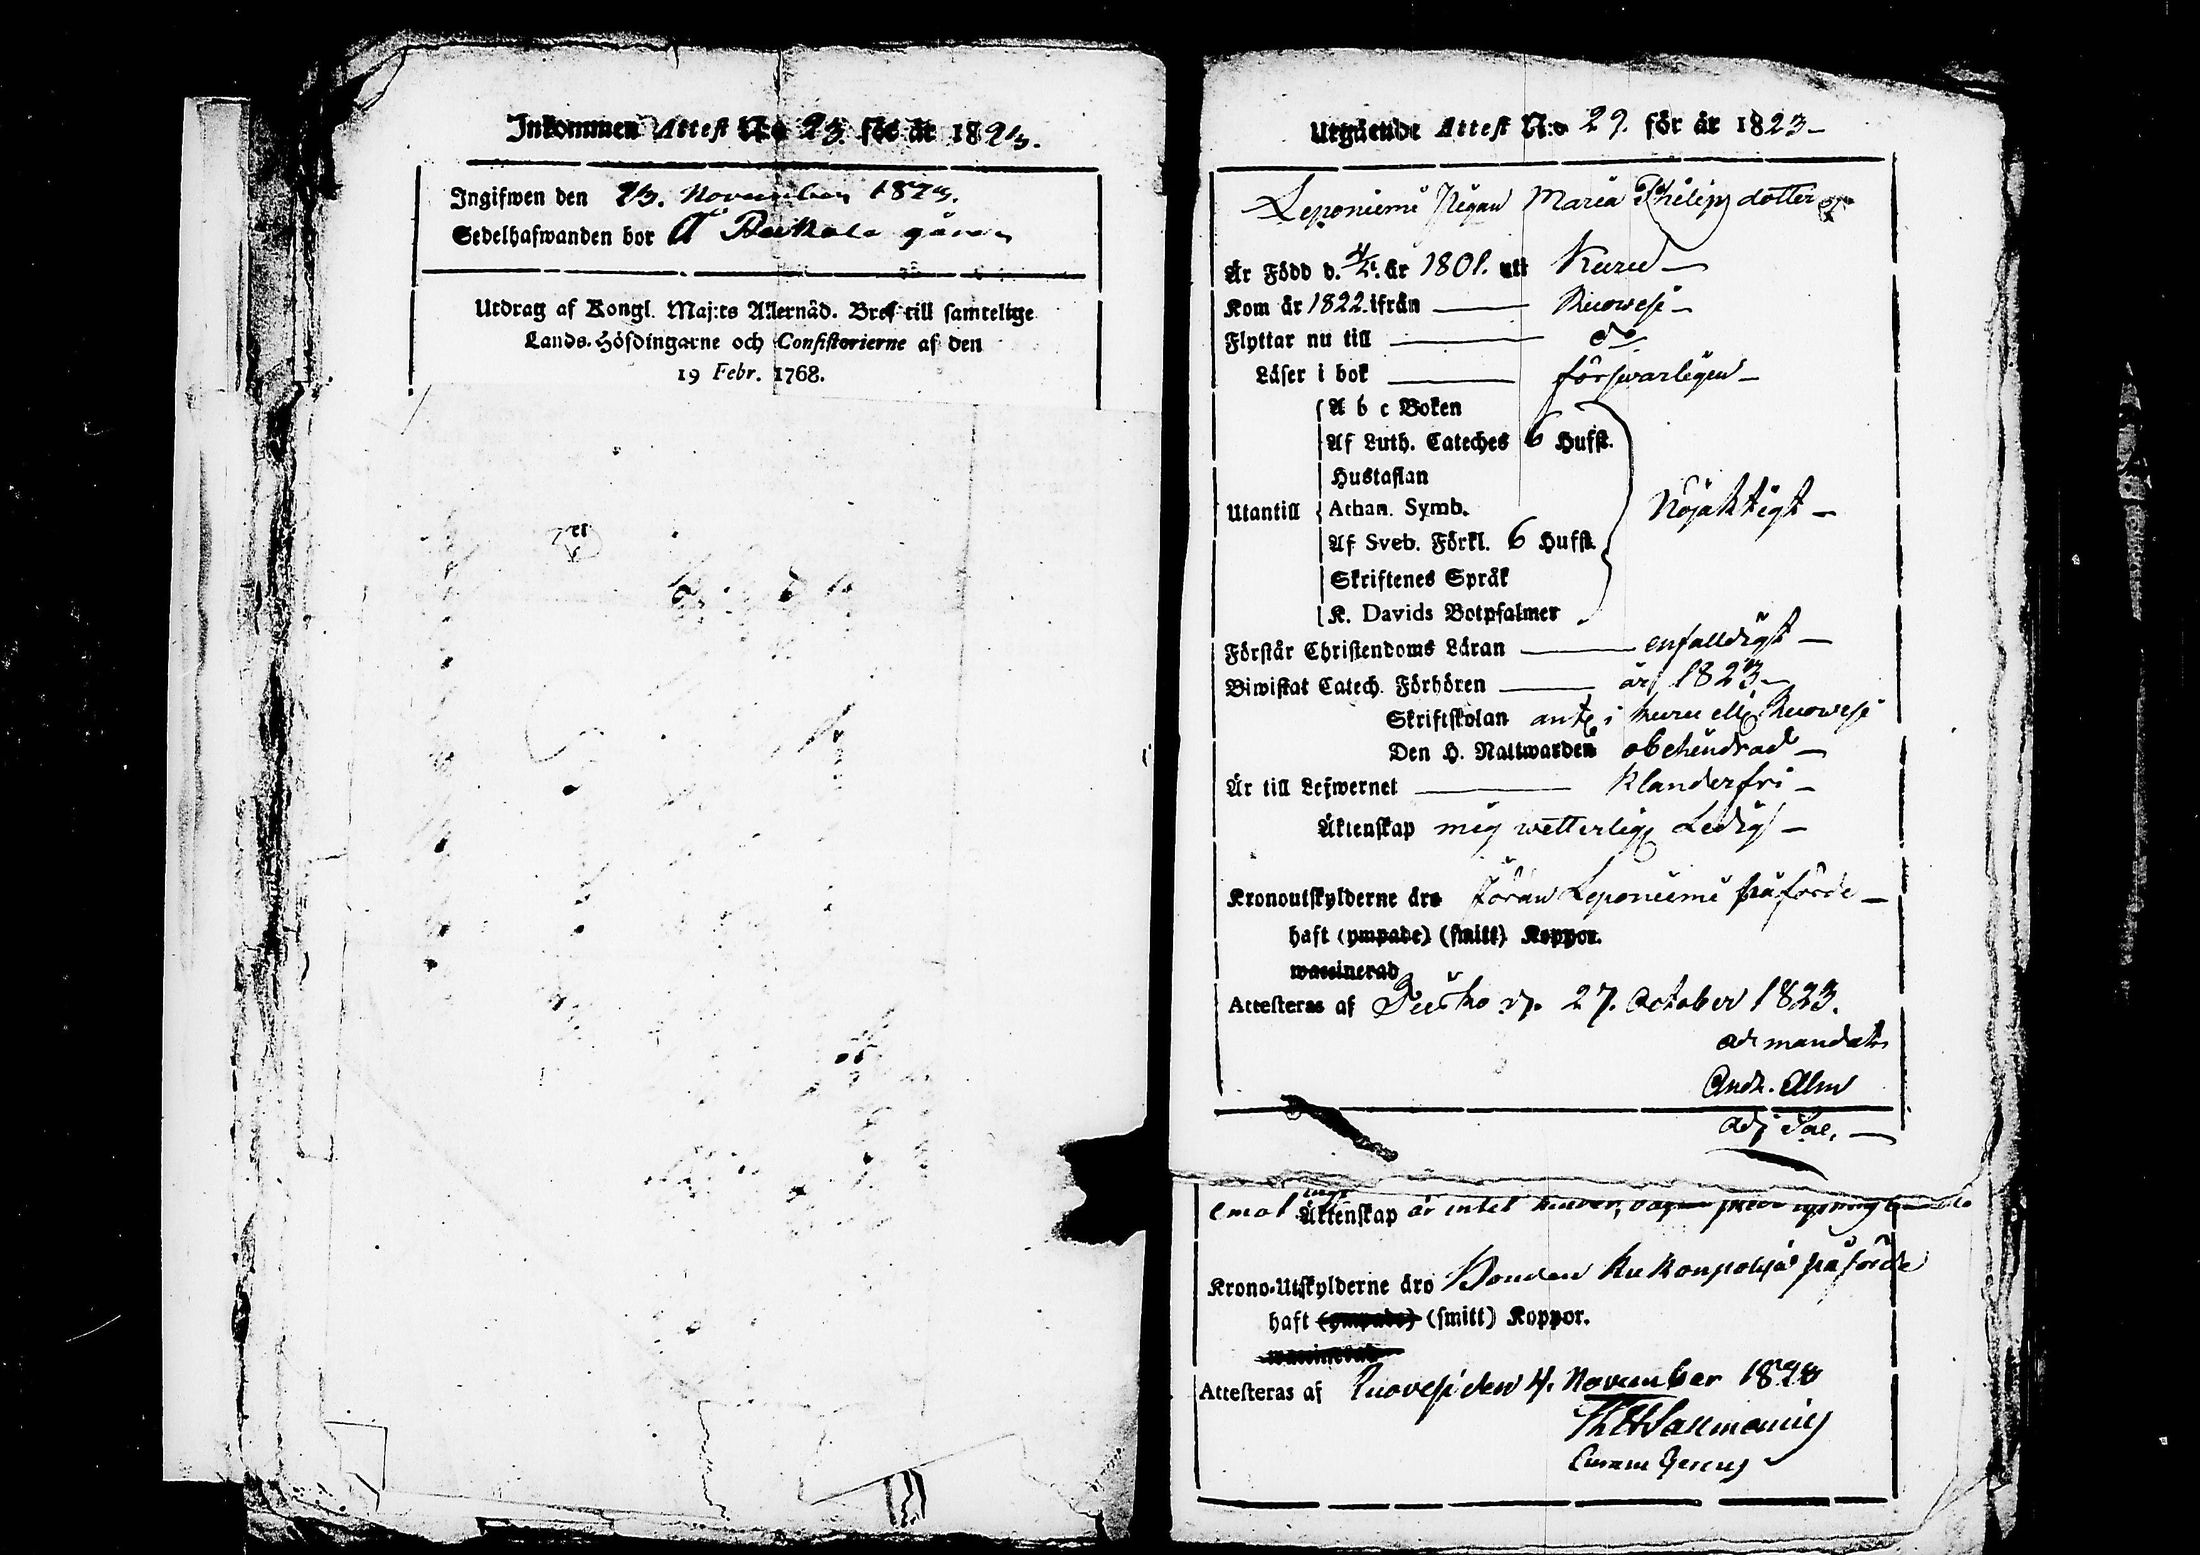 Inkommen Attest N:o 23. för år 1823.
Ingifwen den 23. November 1823.
Sedelhafwanden bor Å gård
Utdrag af Kongl. Maj:ts Allernåd. Bref till samtelige
Lands-Höfdingarne och Consistorierne af den
19 Febr. 1768.
Utgående Attest N:o 29. för år 1823 –
Leponiemi Pigan Maria Philips dotter
Är Född d. år 1801. uti Kuru –
Kom år 1822. ifrån Ruowesi –
Flyttar nu till do
Läser i bok försvarligen –
A b c Boken
Af Luth. Cateches 6 Hufst.
Hustaflan
Utantill Athan. Symb. Nöjaktigt –
Af Sveb. Förkl. 6 Hufst.
Skriftenes Språk
K. Davids Botpsalmer
Förstår Christendoms Läran enfalldigt –
Biwistat Catech. Förhören år 1823 –
Skriftskolan i Kuru Ruowesi
Den H. Nattwarden obehindrad –
Är till Lefwernet Klanderfri –
Äktenskap mig wetterlig Ledig –
Kronoutskylderne äro Leponiemi påförde –
haft (ympade) (smitt) Koppor.
waccinerad
Attesteras af d. 27. October 1823.
ad mandatu
Andr. Alm
adj Sac.
emot Äktenskap är intet
Krono-Utskylderne äro Bonden påförde
haft (ympade) (smitt) Koppor.
waccinerad
Attesteras af Ruovesi den 4. November 1823